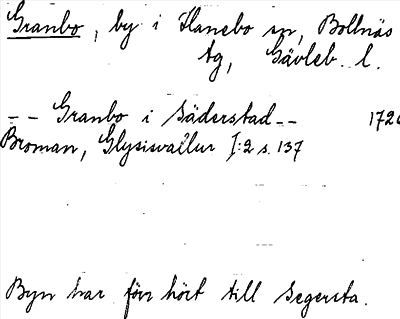 Granbo, by i Hanebo sn, Bollnäs
tg, Gävleb. l.
-- Granbo i Säderstad -- 1720
Broman, Glysisvallur I:2 s. 137
Byn har förr hört till Segersta.